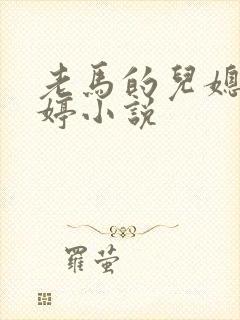 老馬的兒媳
婷小說
羅螢